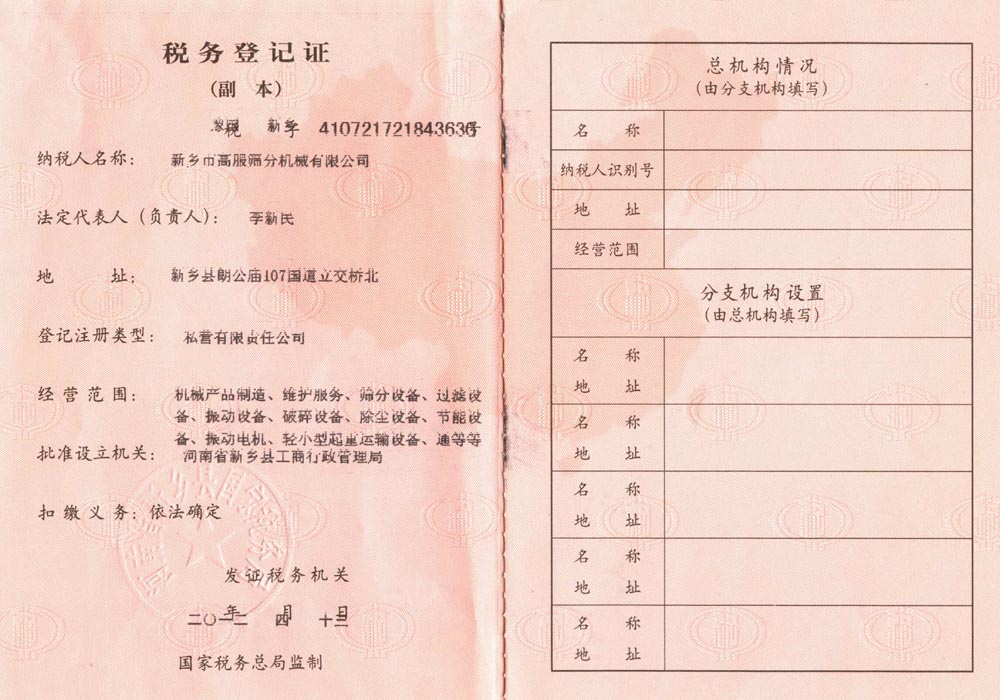 税务登记证
(副 本)
税 字 410721721843636号
纳税人名称： 新乡市高服筛分机械有限公司
法定代表人（负责人）： 李新民
地 址： 新乡县朗公庙107国道立交桥北
登记注册类型： 私营有限责任公司
经营范围： 机械产品制造、维护服务、筛分设备、过滤设
备、振动设备、破碎设备、除尘设备、节能设
备、振动电机、轻小型起重运输设备、通等等
批准设立机关： 河南省新乡县工商行政管理局
扣缴义务：依法确定
发证税务机关
二〇一二 年 四 月 十三 日
国家税务总局监制
总机构情况
(由分支机构填写)
名 称
纳税人识别号
地 址
经营范围
分支机构设置
(由总机构填写)
名 称
地 址
名 称
地 址
名 称
地 址
名 称
地 址
名 称
地 址